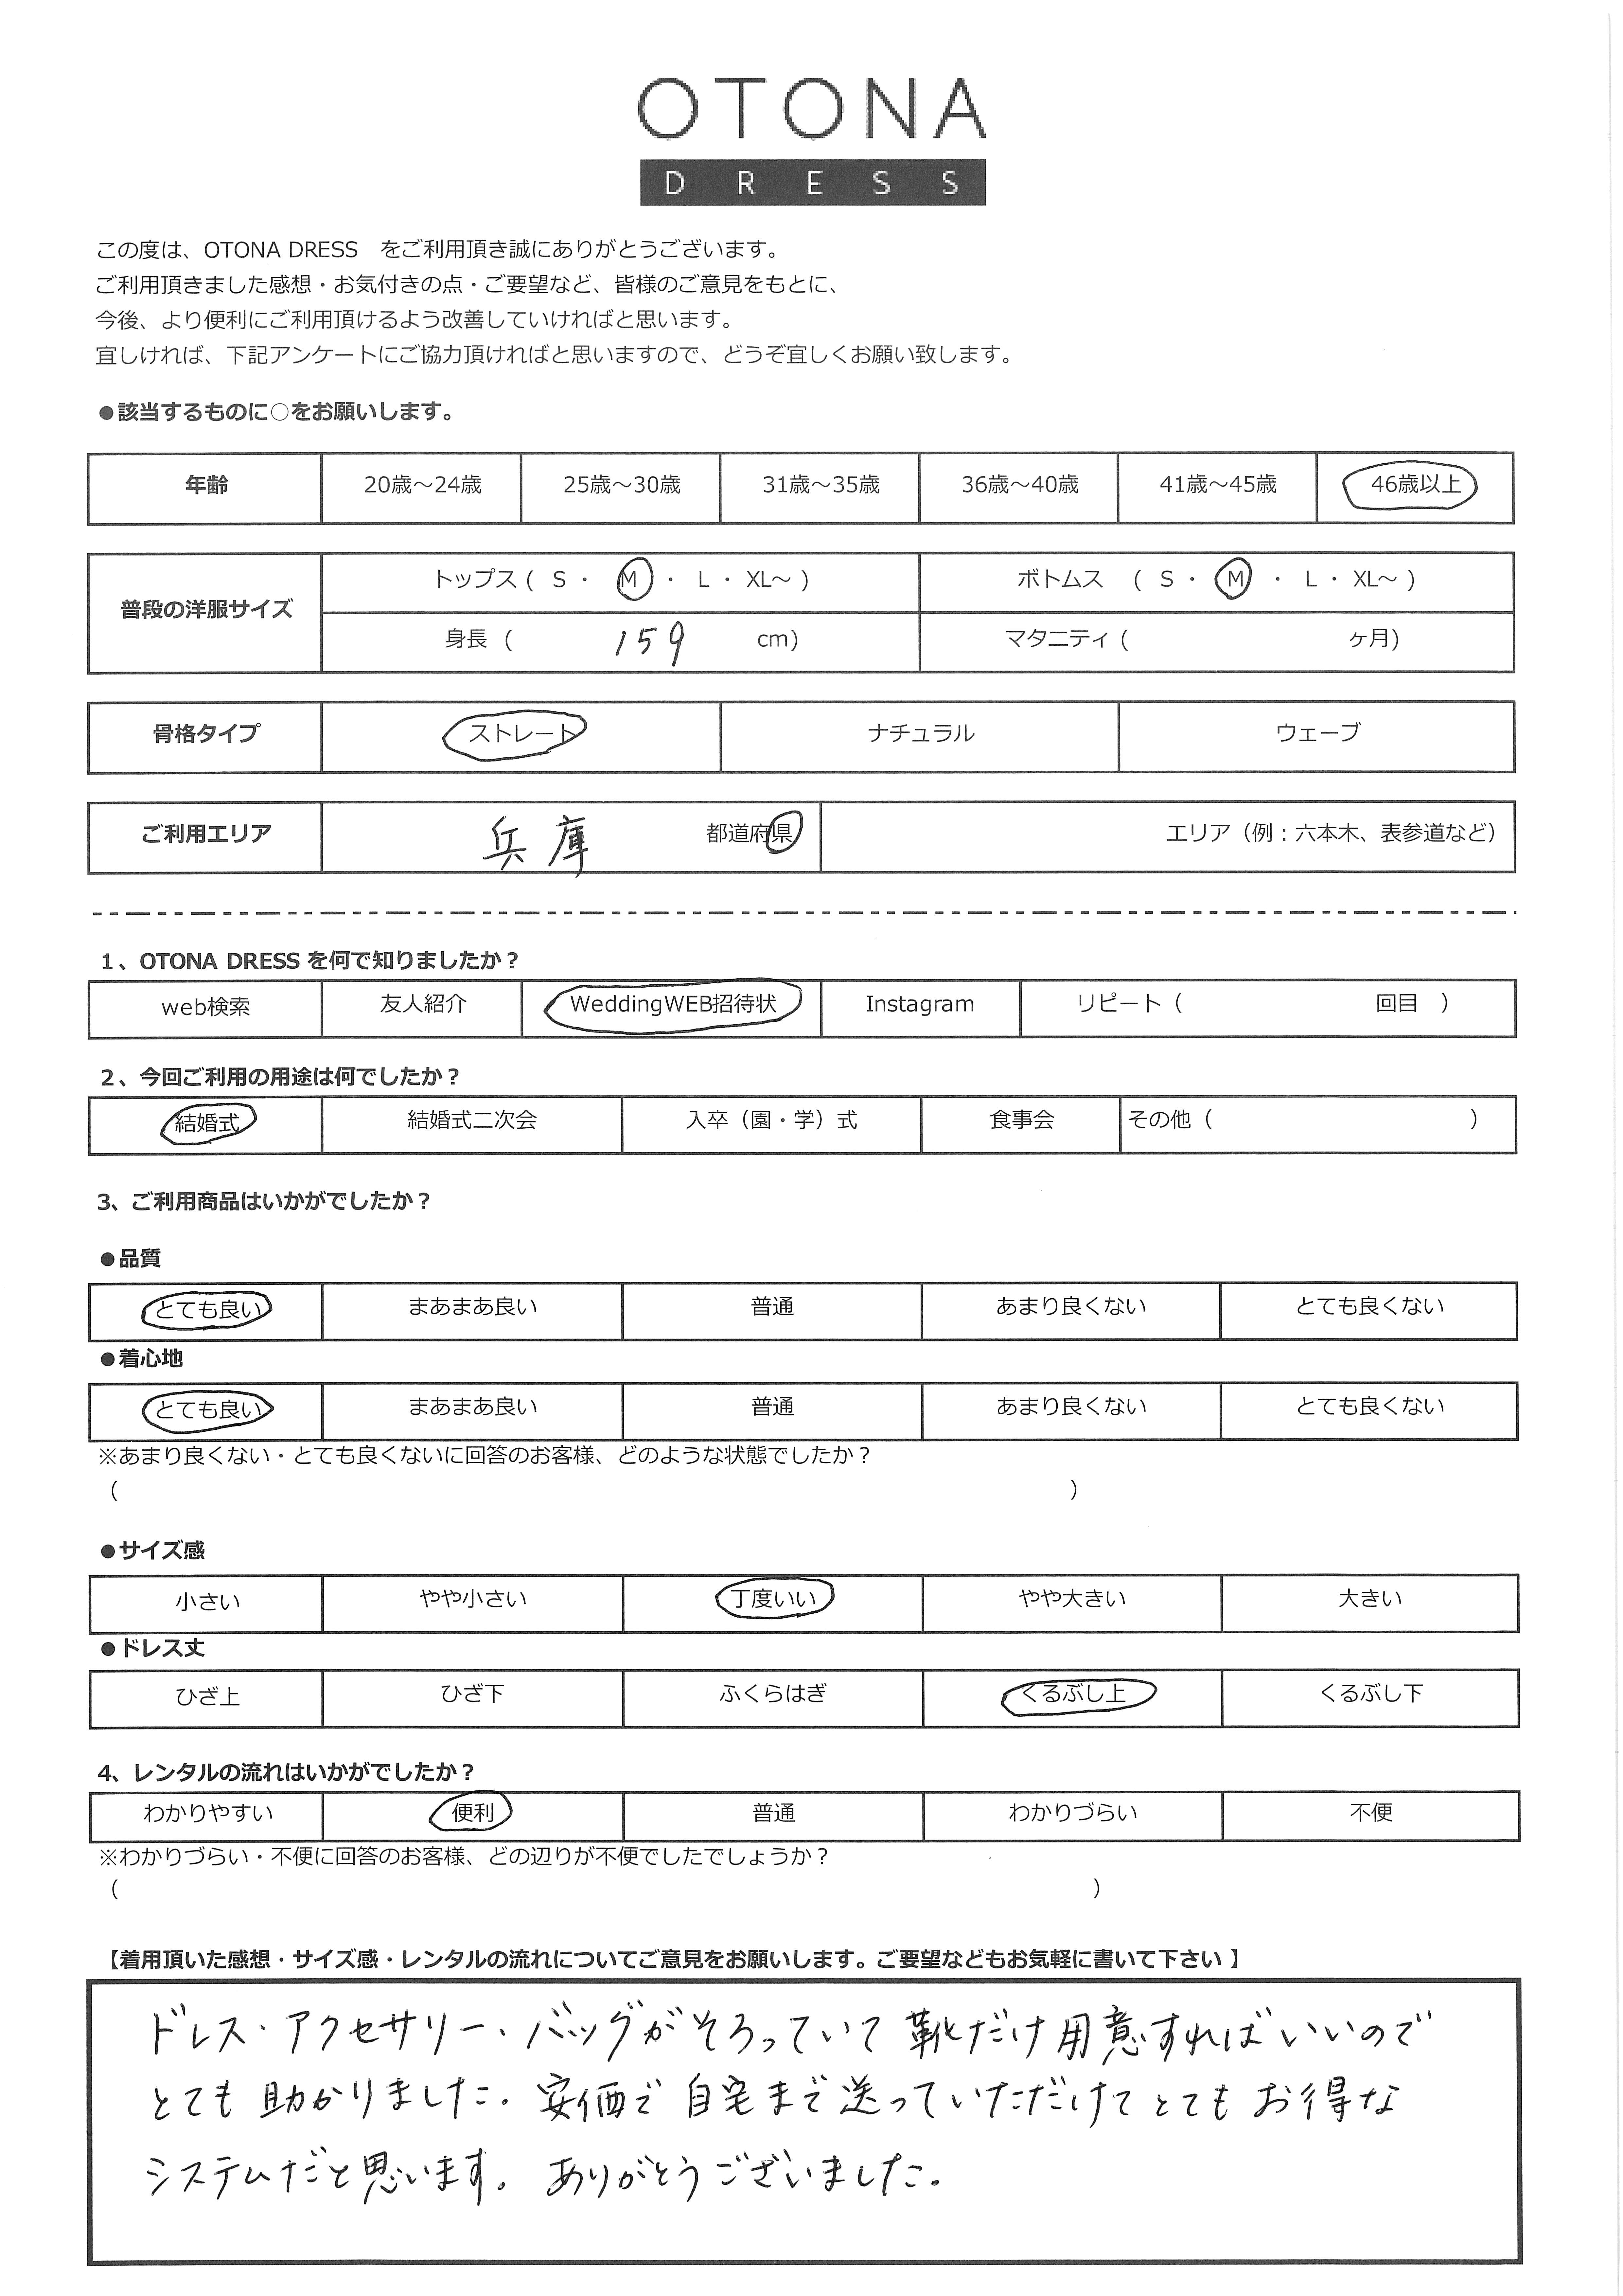 OTONA
DRESS
この度は、OTONA DRESS　をご利用頂き誠にありがとうございます。
ご利用頂きました感想・お気付きの点・ご要望など、皆様のご意見をもとに、
今後、より便利にご利用頂けるよう改善していければと思います。
宜しければ、下記アンケートにご協力頂ければと思いますので、どうぞ宜しくお願い致します。
●該当するものに○をお願いします。
年齢 20歳～24歳 25歳～30歳 31歳～35歳 36歳～40歳 41歳～45歳 46歳以上
普段の洋服サイズ トップス ( S ・ M ・ L ・ XL～ ) ボトムス ( S ・ M ・ L ・ XL～ )
身長 ( 159 cm) マタニティ ( ヶ月)
骨格タイプ ストレート ナチュラル ウェーブ
ご利用エリア 兵庫 都道府県 エリア（例：六本木、表参道など）
1、OTONA DRESS を何で知りましたか？
web検索 友人紹介 WeddingWEB招待状 Instagram リピート（ 回目 ）
2、今回ご利用の用途は何でしたか？
結婚式 結婚式二次会 入卒（園・学）式 食事会 その他（ ）
3、ご利用商品はいかがでしたか？
●品質
とても良い まあまあ良い 普通 あまり良くない とても良くない
●着心地
とても良い まあまあ良い 普通 あまり良くない とても良くない
※あまり良くない・とても良くないに回答のお客様、どのような状態でしたか？
（ ）
●サイズ感
小さい やや小さい 丁度いい やや大きい 大きい
●ドレス丈
ひざ上 ひざ下 ふくらはぎ くるぶし上 くるぶし下
4、レンタルの流れはいかがでしたか？
わかりやすい 便利 普通 わかりづらい 不便
※わかりづらい・不便に回答のお客様、どの辺りが不便でしたでしょうか？
（ ）
【着用頂いた感想・サイズ感・レンタルの流れについてご意見をお願いします。ご要望などもお気軽に書いて下さい 】
ドレス・アクセサリー・バッグがそろっていて靴だけ用意すればいいので
とても助かりました。安価で自宅まで送っていただだけてとてもお得な
システムだと思います。ありがとうございました。